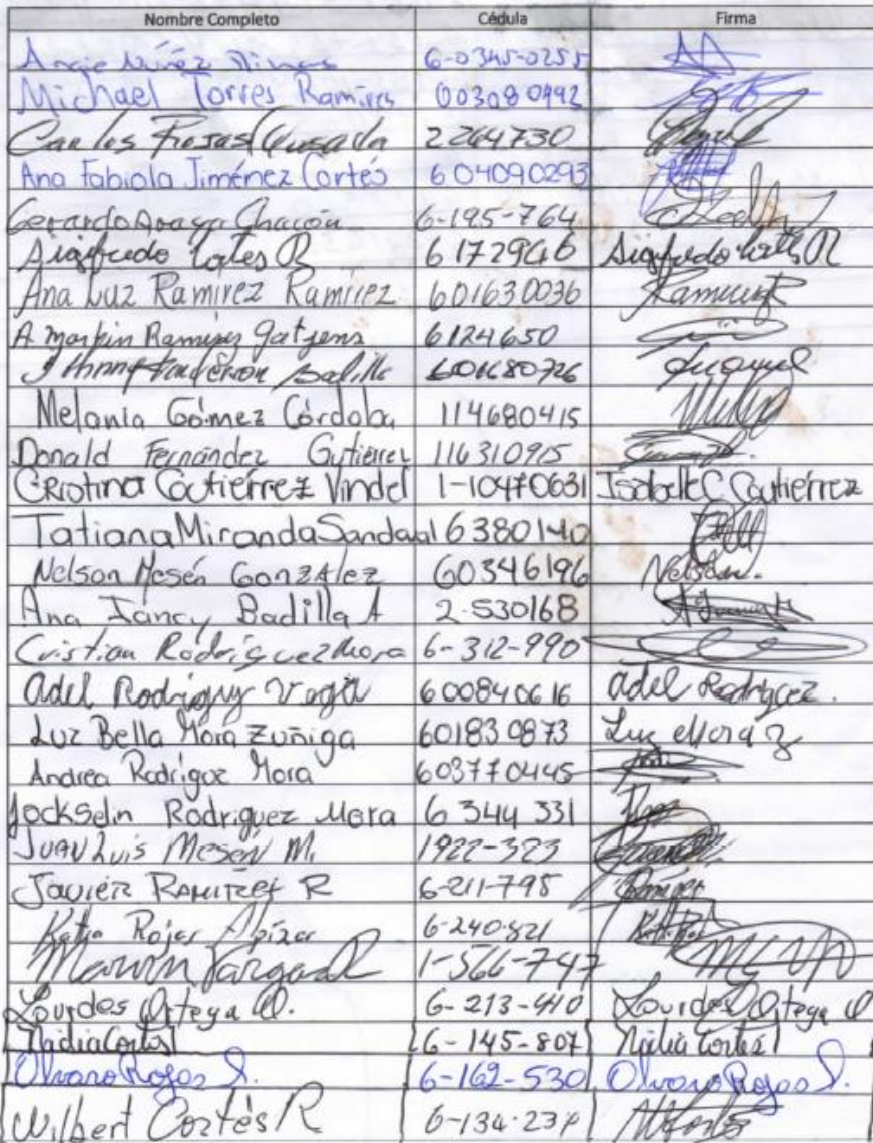 Nombre Completo Cédula Firma
Angie Núñez 6-0345-0255
Michael Torres Ramires 603080992
Carlos Rosas Quesada 2264730
Ana Fabiola Jiménez Cortés 604090293
Gerardo Araya Chacón 6-195-764
Sigifredo Cortes R 6172946 Sigifredo Cortes R
Ana Luz Ramirez Ramirez 601630036 Ramirez R
A martin Ramirez gatjens 6124650
Badilla 601680726
Melania Gómez Córdoba 114680415
Donald Fernández Gutiérrez 116310915
Cristina Goutierrez Vindel 1-10470631 Isabelle C Goutiérrez
Tatiana Miranda Sandoval 6380140
Nelson Mesén González 60346196 Nelson.
Ana Iancy Badilla A 2-530168
Cristian Rodríguez Mora 6-312-990
adel Rodriguy Vega 600840616 adel Rodriguez.
Luz Bella Mora Zuñiga 601830873 Luz Mora Z
Andrea Rodrigoz Mora 603770445
Jockselin Rodriguez Mora 6 344 331
Juan Luis Mesén M. 1922-323
Javier Ramirez R 6-211-795 Ramirez
Katia Rojas Alpizar 6-240-821
Marvin Vargas R 1-566-747
Lourdes Ortega O. 6-213-410 Lourdes Ortega O
Nidia Cortés 6-145-807 Nidia Cortés
Olvaro Rojas S. 6-162-530 Olvaro Rojas S.
Wilbert Cortés R 6-134-234